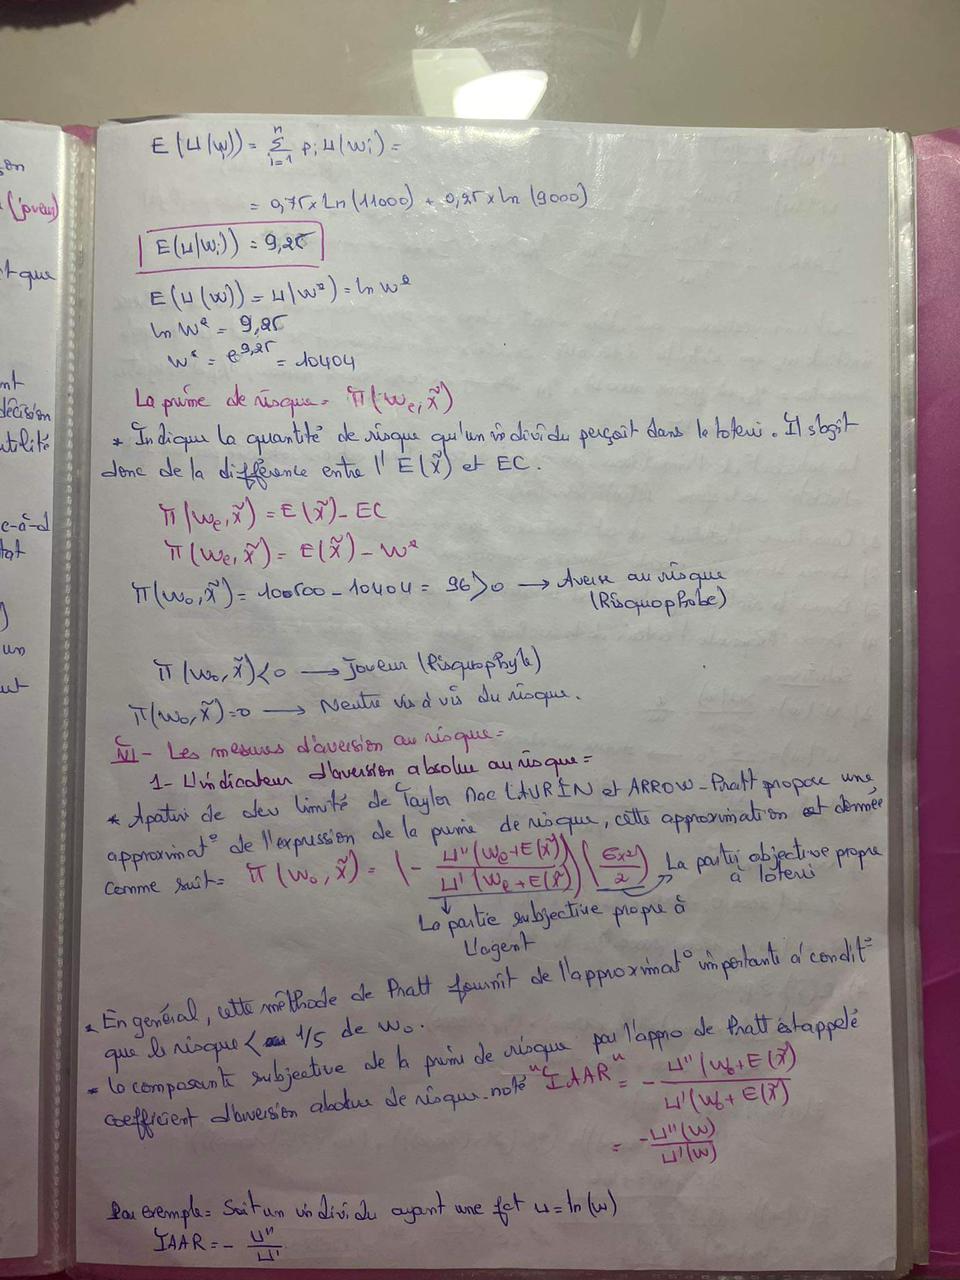 on
(joueur)
t que
nt
décision
utilité
c-à-d
tat
)
un
ut
E(U(W)) = Σ(i=1→n) Pi U(Wi) =
= 0,75 x Ln(11000) + 0,25 x ln(9000)
E(U(Wi)) = 9,25
E(U(W)) = U(W²) = ln W²
ln W² = 9,25
W² = e^9,25 = 10404
La prime de risque = π(We, x̃)
* Indique la quantité de risque qu'un individu perçoit dans le loterie. Il s'agit
donc de la différence entre l' E(x̃) et EC.
π(We, x̃) = E(x̃) - EC
π(We, x̃) = E(x̃) - W²
π(W₀, x̃) = 100500 - 10404 = 96 > 0 → Averse au risque
(Risquophobe)
π(W₀, x̃) < 0 → Joueur (Risquophyle)
π(W₀, x̃) = 0 → Neutre vis à vis du risque.
- Les mesures d'aversion au risque =
1- L'indicateur d'aversion absolue au risque =
* Apatir de dev limité de Taylor Mac LAURIN et ARROW-Pratt propose une
approximat° de l'expression de la prime de risque, cette approximation est donnée
comme suit = π(W₀, x̃) = (- U''(W₀ + E(x̃)) / U'(W₀ + E(x̃))) (σx² / 2) La partie objective propre
à loterie
La partie subjective propre à
L'agent
* En général, cette méthode de Pratt fournit de l'approximat° importante à condit°
que le risque < 1/5 de W₀.
* la composante subjective de la prime de risque par l'appro de Pratt est appelé
coefficient d'aversion absolue de risque. noté "IAAR" = - U''(W₀ + E(x̃)) / U'(W₀ + E(x̃))
= - U''(W) / U'(W)
Par exemple = Soit un individu ayant une fct U = ln(W)
IAAR = - U'' / U'